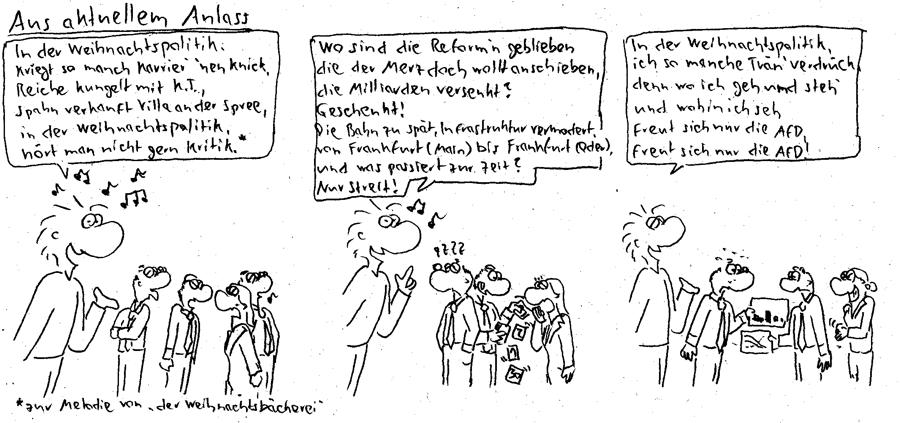 Aus aktuellem Anlass
In der Weihnachtspolitik:
kriegt so manch Karrier' 'nen Knick,
Reiche kungelt mit K.T.,
Spahn verkauft Villa an der Spree,
in der Weihnachtspolitik,
hört man nicht gern Kritik.*
Wo sind die Reform'n geblieben
die der Merz doch wollt anschieben,
die Milliarden versenkt?
Geschenkt!
Die Bahn zu spät, Infrastruktur vermodert,
von Frankfurt (Main) bis Frankfurt (Oder),
und was passiert zur Zeit?
Nur Streit!
In der Weihnachtspolitik,
ich so manche Trän' verdrück
denn wo ich geh und steh
und wohin ich seh
Freut sich nur die AfD,
Freut sich nur die AfD!
zzzz
*zur Melodie von „der Weihnachtsbäckerei"